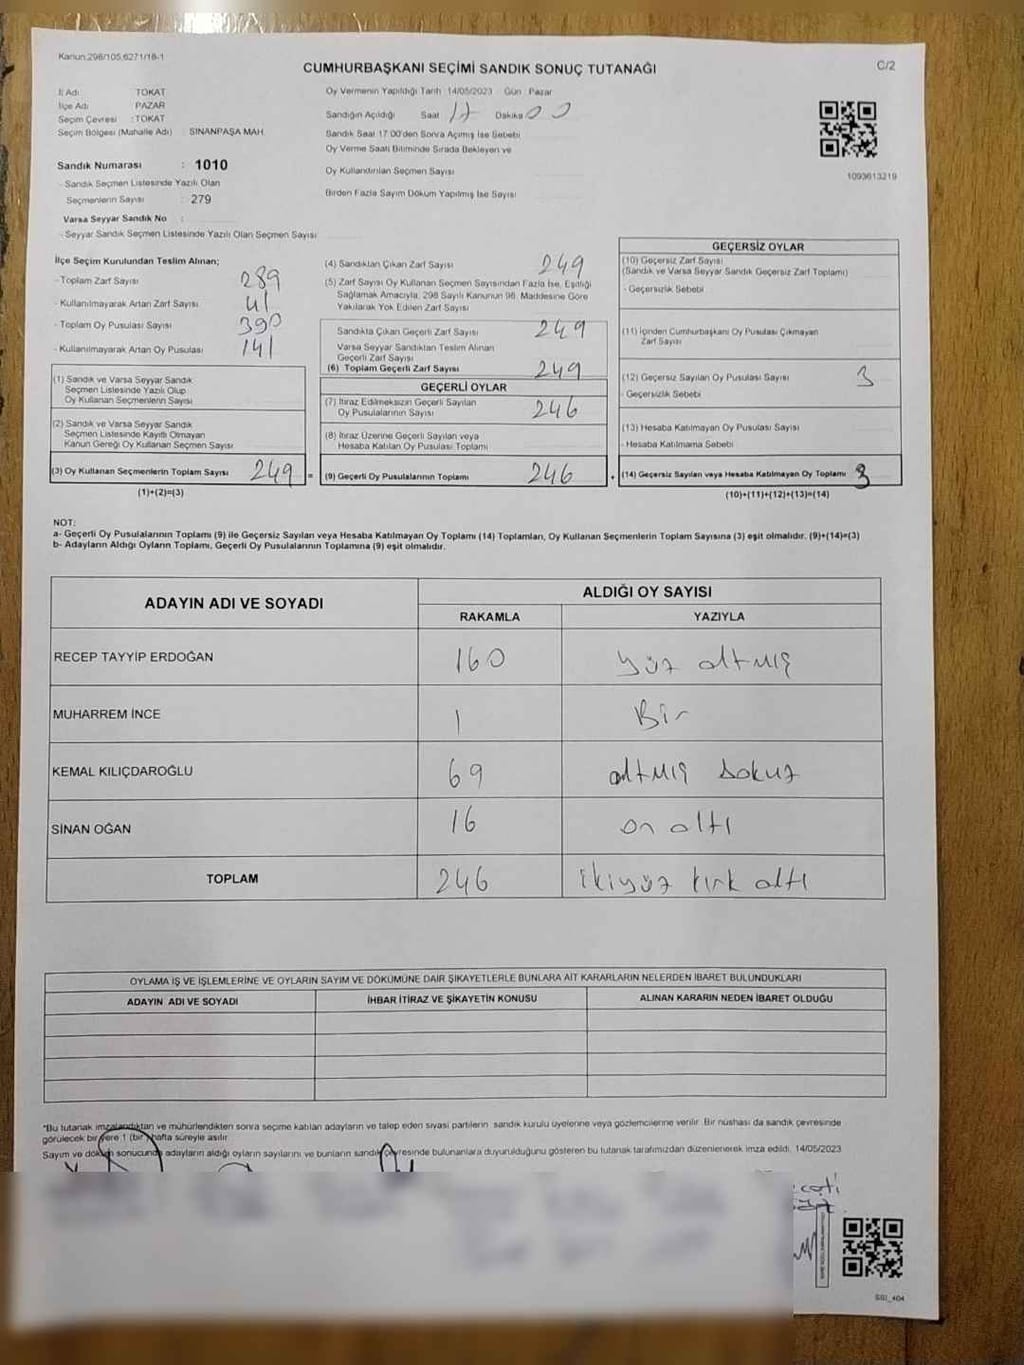 Kanun:298/105,6271/18-1
C/2
CUMHURBAŞKANI SEÇİMİ SANDIK SONUÇ TUTANAĞI
İl Adı : TOKAT
İlçe Adı : PAZAR
Seçim Çevresi : TOKAT
Seçim Bölgesi (Mahalle Adı) : SİNANPAŞA MAH.
Sandık Numarası : 1010
- Sandık Seçmen Listesinde Yazılı Olan
Seçmenlerin Sayısı : 279
Varsa Seyyar Sandık No :
- Seyyar Sandık Seçmen Listesinde Yazılı Olan Seçmen Sayısı
Oy Vermenin Yapıldığı Tarih :14/05/2023 Gün : Pazar
Sandığın Açıldığı Saat 17 Dakika 00
Sandık Saat 17.00'den Sonra Açılmış İse Sebebi
Oy Verme Saati Bitiminde Sırada Bekleyen ve
Oy Kullandırılan Seçmen Sayısı
Birden Fazla Sayım Döküm Yapılmış İse Sayısı
1093613219
İlçe Seçim Kurulundan Teslim Alınan;
- Toplam Zarf Sayısı 289
- Kullanılmayarak Artan Zarf Sayısı 41
- Toplam Oy Pusulası Sayısı 390
- Kullanılmayarak Artan Oy Pusulası 141
(1) Sandık ve Varsa Seyyar Sandık
Seçmen Listesinde Yazılı Olup
Oy Kullanan Seçmenlerin Sayısı
(2) Sandık ve Varsa Seyyar Sandık
Seçmen Listesinde Kayıtlı Olmayan
Kanun Gereği Oy Kullanan Seçmen Sayısı
(3) Oy Kullanan Seçmenlerin Toplam Sayısı 249 =
(1)+(2)=(3)
(4) Sandıktan Çıkan Zarf Sayısı 249
(5) Zarf Sayısı Oy Kullanan Seçmen Sayısından Fazla İse, Eşitliği
Sağlamak Amacıyla, 298 Sayılı Kanunun 98. Maddesine Göre
Yakılarak Yok Edilen Zarf Sayısı
Sandıkta Çıkan Geçerli Zarf Sayısı 249
Varsa Seyyar Sandıktan Teslim Alınan
Geçerli Zarf Sayısı
(6) Toplam Geçerli Zarf Sayısı 249
GEÇERLİ OYLAR
(7) İtiraz Edilmeksizin Geçerli Sayılan
Oy Pusulalarının Sayısı 246
(8) İtiraz Üzerine Geçerli Sayılan veya
Hesaba Katılan Oy Pusulası Toplamı
(9) Geçerli Oy Pusulalarının Toplamı 246 +
GEÇERSİZ OYLAR
(10) Geçersiz Zarf Sayısı
(Sandık ve Varsa Seyyar Sandık Geçersiz Zarf Toplamı)
- Geçersizlik Sebebi
(11) İçinden Cumhurbaşkanı Oy Pusulası Çıkmayan
Zarf Sayısı
(12) Geçersiz Sayılan Oy Pusulası Sayısı 3
- Geçersizlik Sebebi
(13) Hesaba Katılmayan Oy Pusulası Sayısı
- Hesaba Katılmama Sebebi
(14) Geçersiz Sayılan veya Hesaba Katılmayan Oy Toplamı 3
(10)+(11)+(12)+(13)=(14)
NOT:
a- Geçerli Oy Pusulalarının Toplamı (9) ile Geçersiz Sayılan veya Hesaba Katılmayan Oy Toplamı (14) Toplamları, Oy Kullanan Seçmenlerin Toplam Sayısına (3) eşit olmalıdır. (9)+(14)=(3)
b- Adayların Aldığı Oyların Toplamı, Geçerli Oy Pusulalarının Toplamına (9) eşit olmalıdır.
ADAYIN ADI VE SOYADI ALDIĞI OY SAYISI
RAKAMLA YAZIYLA
RECEP TAYYİP ERDOĞAN 160 yüz altmış
MUHARREM İNCE 1 Bir
KEMAL KILIÇDAROĞLU 69 altmış dokuz
SİNAN OĞAN 16 on altı
TOPLAM 246 ikiyüz kırk altı
OYLAMA İŞ VE İŞLEMLERİNE VE OYLARIN SAYIM VE DÖKÜMÜNE DAİR ŞİKAYETLERLE BUNLARA AİT KARARLARIN NELERDEN İBARET BULUNDUKLARI
ADAYIN ADI VE SOYADI İHBAR İTİRAZ VE ŞİKAYETİN KONUSU ALINAN KARARIN NEDEN İBARET OLDUĞU
*Bu tutanak imzalandıktan ve mühürlendikten sonra seçime katılan adayların ve talep eden siyasi partilerin sandık kurulu üyelerine veya gözlemcilerine verilir. Bir nüshası da sandık çevresinde
görülecek bir yere 1 (bir) hafta süreyle asılır.
Sayım ve döküm sonucunda adayların aldığı oyların sayılarını ve bunların sandık çevresinde bulunanlara duyurulduğunu gösteren bu tutanak tarafımızdan düzenlenerek imza edildi. 14/05/2023